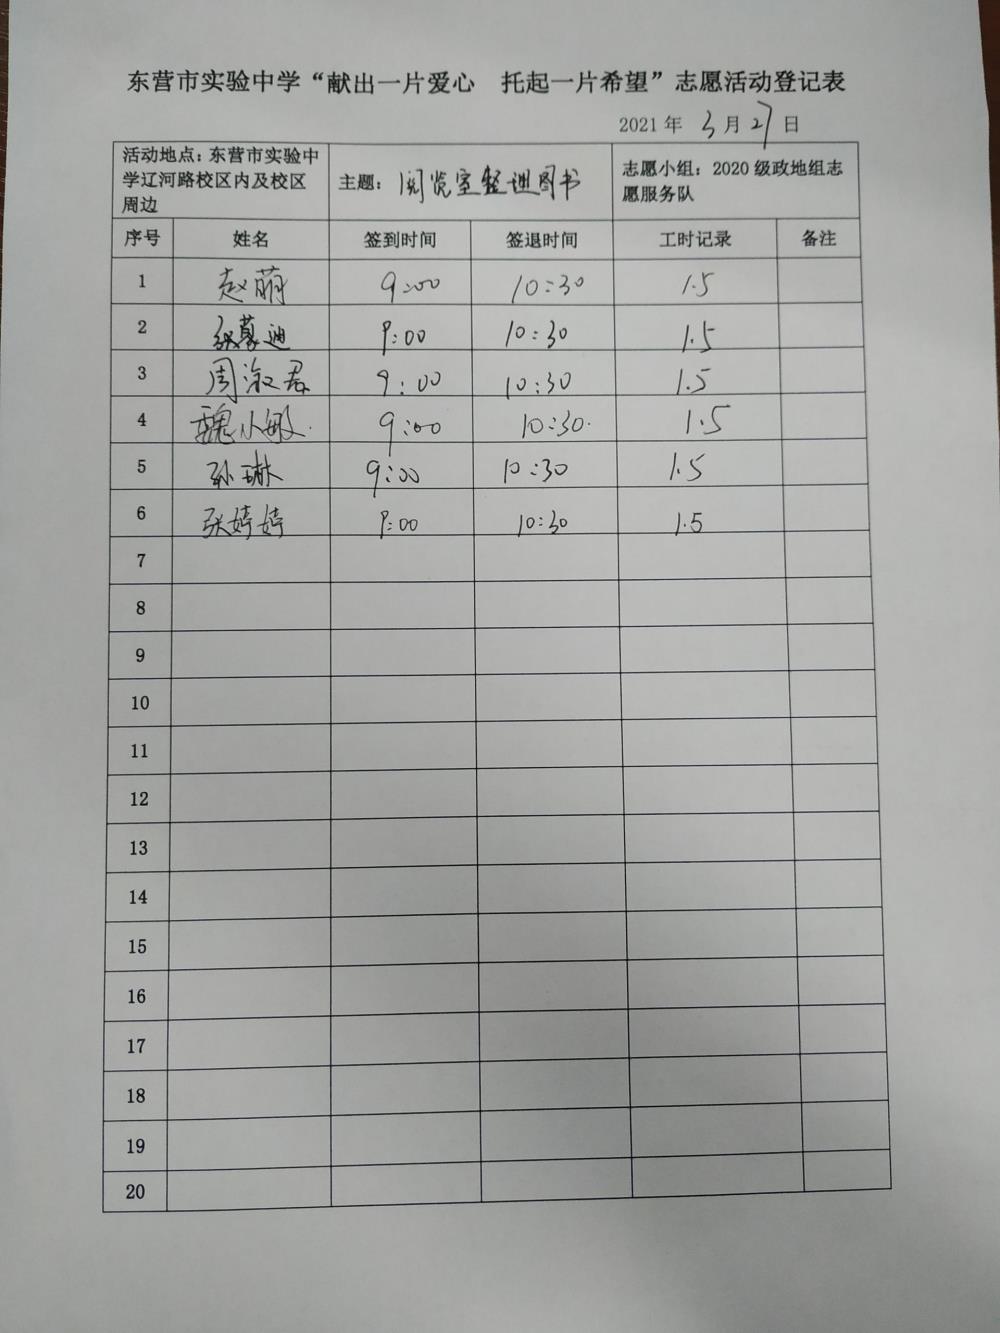 东营市实验中学“献出一片爱心 托起一片希望”志愿活动登记表
2021 年 3 月 27 日
活动地点：东营市实验中
学辽河路校区内及校区
周边
主题：阅览室整理图书
志愿小组：2020 级政地组志
愿服务队
序号 姓名 签到时间 签退时间 工时记录 备注
1 赵萌 9:00 10:30 1.5
2 张蒙迪 9:00 10:30 1.5
3 周淑君 9:00 10:30 1.5
4 魏小敏 9:00 10:30 1.5
5 孙琳 9:00 10:30 1.5
6 张婷婷 9:00 10:30 1.5
7
8
9
10
11
12
13
14
15
16
17
18
19
20